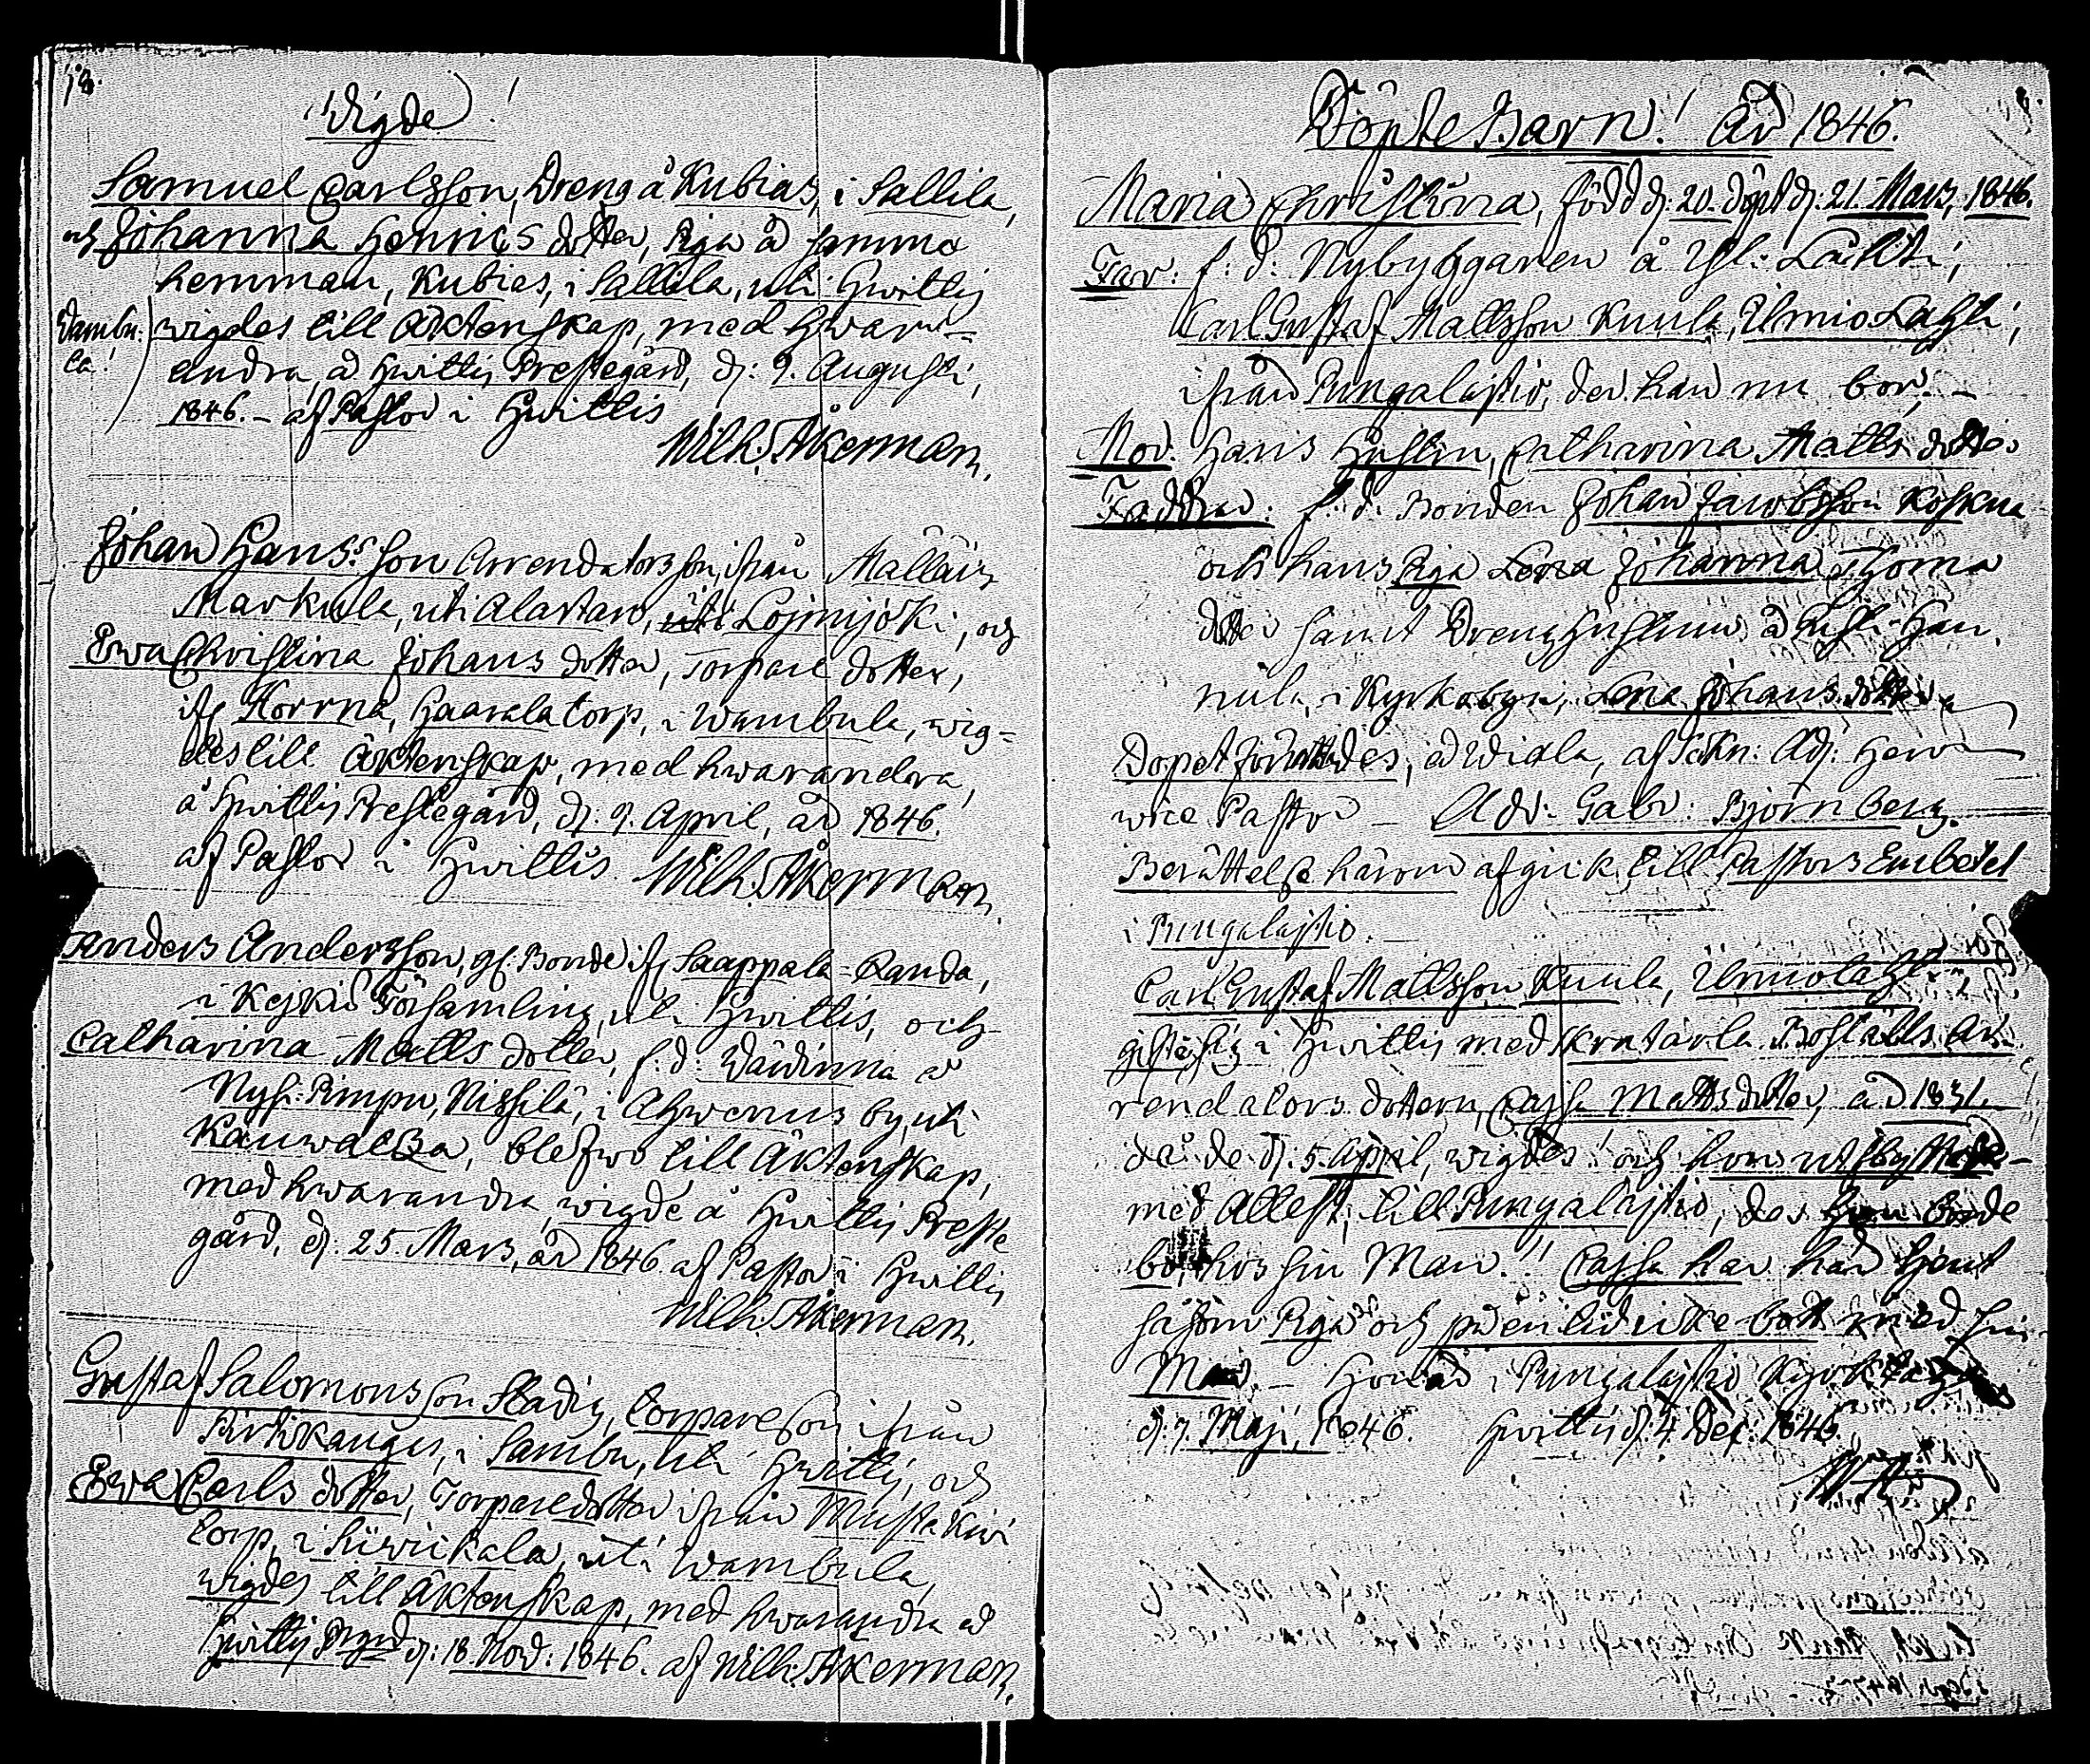 Wigde!
Samuel Carlsson, Dreng å Kubias, i Sallila,
och Johanna Henrics dotter, Piga å samma
hemman, Kubias, i Sallila, uti Hwittis
Wambu-
la!
wigdes till Äktenskap, med hwar-
andra, å Hwittis Prestegård, d: 9. Augusti,
1846. – af Pastor i Hwittis
Wilh. Åkerman.
Johan Hans:son Arrendators son, ifrån Mälläis
Markula, uti Alastaro, uti Lojmijoki, och
Ewa Christina Johans dotter, Torpare dotter,
ifr Korrna, Haarala torp, i Wambula, wig=
des till Äktenskap, med hwarandra,
å Hwittis Prestegård, d: 9. April, år 1846.
af Pastor i Hwittis. Wilh. Åkerman.
Anders Andersson, gl. Bonde ifr Saappala=Randa,
i Kejkiö Församling, uti Hwittis, och
Catharina Matts dotter, f.d: Wärdinna å
Nyh: Pimpu, Nissilä, i Ahwenus by, uti
Kauwatza, blefwo till Äktenskap,
med hwarandra, wigde å Hwittis Preste
gård, d: 25. Mars, år 1846. af Pastor i Hwittis
Wilh. Åkerman.
Gustaf Salomonsson Stadig, torpareson ifrån
Pirkkanges, i Sambu, uti Hwittis, och
Ewa Carls dotter, Torparedotter ifrån Musta Kivi
torp, i Suwikala, uti Wambula,
wigdes till Äktenskap, med hwarandra å
Hwittis Prgrd d: 18. Nov: 1846. af Wilh: Åkerman.
Döpte Barn! År 1846.
Maria Christina, född d: 20. döpt d: 21. Mars, 1846.
Far: f: d: Nybyggaren å Lähti,
Carl Gustaf Mattsson Kuula, Ulmio Lahti,
ifrån Pungalajtio, der han nu bor, –
Mor: Hans Hustru, Catharina Matts dotter
Faddrar: f. d. Bonden Johan Jacobsson Koskua
och hans Piga Lena Johanna Thoma
dotter samt Dreng hustrun å Han
nula, i Kyrkobyn, Lena Johans dotter
Dopet förrättades, å Widla, af Adj: Herr
wice Pastor – Adr: Gabr: Björnberg.
Berättelse härom afgick, till Pastors Embetet
i Pungalajtio. –
Carl Gustaf Mattsson Kuula, Ulmio Lahti
gifte sig i Hwittis med Boställs Ar-
rendators dottern, Cajsa Matts dotter, år 1831.
då de d: 5. April, wigdes! och hon utflyttade
med Attest, till Pungalajtio, der hon borde
bo, hos sin Man!! Cajsa har här tjent
såsom Piga och på en tid icke bott med sin
Man. – i Pungalajtio
d: 7. Maji, 1846. Hwittis d: 4. Dec: 1846.